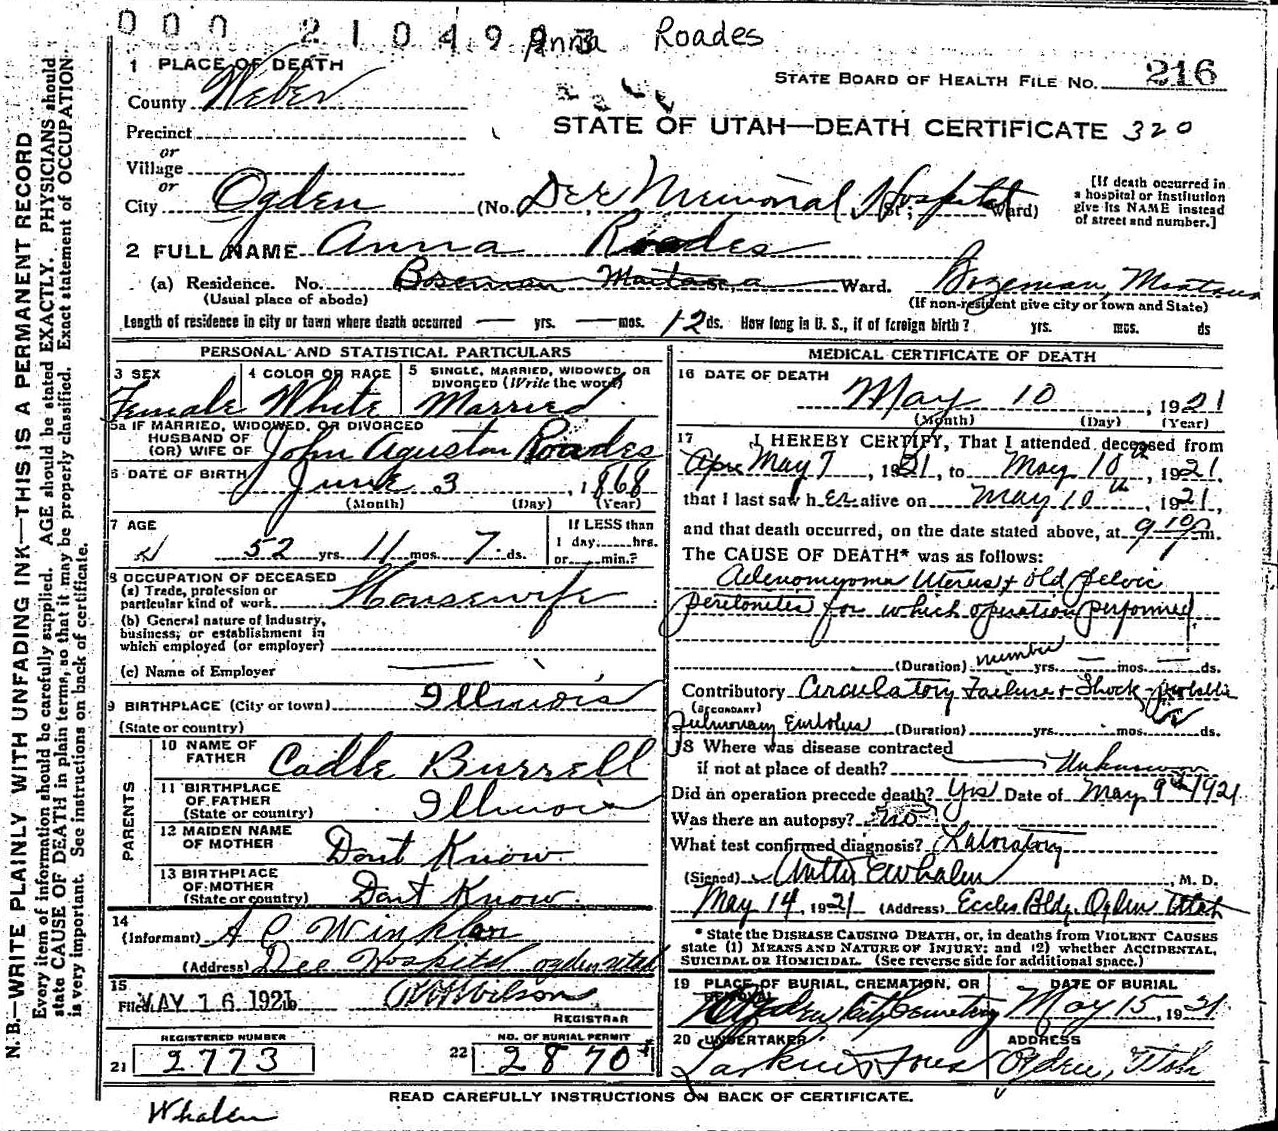 000 2104993 Anna Roades
1 PLACE OF DEATH
STATE BOARD OF HEALTH FILE No. 216
County Weber
STATE OF UTAH—DEATH CERTIFICATE 320
Precinct
or
Village
or
City Ogden (No. Dee Memorial Hospital St.; Ward)
[If death occurred in a hospital or institution give its NAME instead of street and number.]
2 FULL NAME Anna Roades
(a) Residence. No. Boseman Montana Ward. Bozeman, Montana
(Usual place of abode) (If non-resident give city or town and State)
Length of residence in city or town where death occurred — yrs. — mos. 12 ds. How long in U. S., if of foreign birth? yrs. mos. ds
PERSONAL AND STATISTICAL PARTICULARS
3 SEX 4 COLOR OR RACE 5 SINGLE, MARRIED, WIDOWED, OR DIVORCED (Write the word)
Female White Married
5a IF MARRIED, WIDOWED, OR DIVORCED
HUSBAND OF
(OR) WIFE OF John Aguston Roades
6 DATE OF BIRTH June 3, 1868
(Month) (Day) (Year)
7 AGE 52 yrs. 11 mos. 7 ds.
If LESS than
1 day.....hrs.
or.....min.?
8 OCCUPATION OF DECEASED
(a) Trade, profession or
particular kind of work Housewife
(b) General nature of industry,
business, or establishment in
which employed (or employer)
(c) Name of Employer
9 BIRTHPLACE (City or town) Illinois
(State or country)
PARENTS
10 NAME OF FATHER Cadle Burrell
11 BIRTHPLACE OF FATHER (State or country) Illinois
12 MAIDEN NAME OF MOTHER Dont Know
13 BIRTHPLACE OF MOTHER (State or country) Dont Know
14
(Informant) A C Winkler
(Address) Dee Hospital Ogden Utah
15
Filed MAY 16 1921
REGISTRAR
REGISTERED NUMBER
21 2773
NO. OF BURIAL PERMIT
22 2870
MEDICAL CERTIFICATE OF DEATH
16 DATE OF DEATH
May 10, 1921
(Month) (Day) (Year)
17 I HEREBY CERTIFY, That I attended deceased from
May 7, 1921, to May 10th, 1921
that I last saw her alive on May 10th, 1921,
and that death occurred, on the date stated above, at 9 10 P m.
The CAUSE OF DEATH* was as follows:
Adenomyoma Uterus + old pelvic
peritonitis for which operation performed
(Duration) number yrs. — mos. — ds.
Contributory Circulatory Failure + Shock - probable
(SECONDARY)
Pulmonary Embolus (Duration) yrs. mos. ds.
18 Where was disease contracted
if not at place of death? Unknown
Did an operation precede death? Yes Date of May 9th 1921
Was there an autopsy? no
What test confirmed diagnosis? Laboratory
(Signed) E Whalen M. D.
May 14, 1921 (Address) Eccles Bldg. Ogden Utah
* State the DISEASE CAUSING DEATH, or, in deaths from VIOLENT CAUSES
state (1) MEANS AND NATURE OF INJURY; and (2) whether ACCIDENTAL,
SUICIDAL OR HOMICIDAL. (See reverse side for additional space.)
19 PLACE OF BURIAL, CREMATION, OR REMOVAL DATE OF BURIAL
Ogden City Cemetery May 15, 1921
20 UNDERTAKER ADDRESS
Larkin & Sons Ogden, Utah
READ CAREFULLY INSTRUCTIONS ON BACK OF CERTIFICATE.
Whalen
N. B.—WRITE PLAINLY WITH UNFADING INK—THIS IS A PERMANENT RECORD
Every item of information should be carefully supplied. AGE should be stated EXACTLY. PHYSICIANS should
state CAUSE OF DEATH in plain terms, so that it may be properly classified. Exact statement of OCCUPATION
is very important. See instructions on back of certificate.